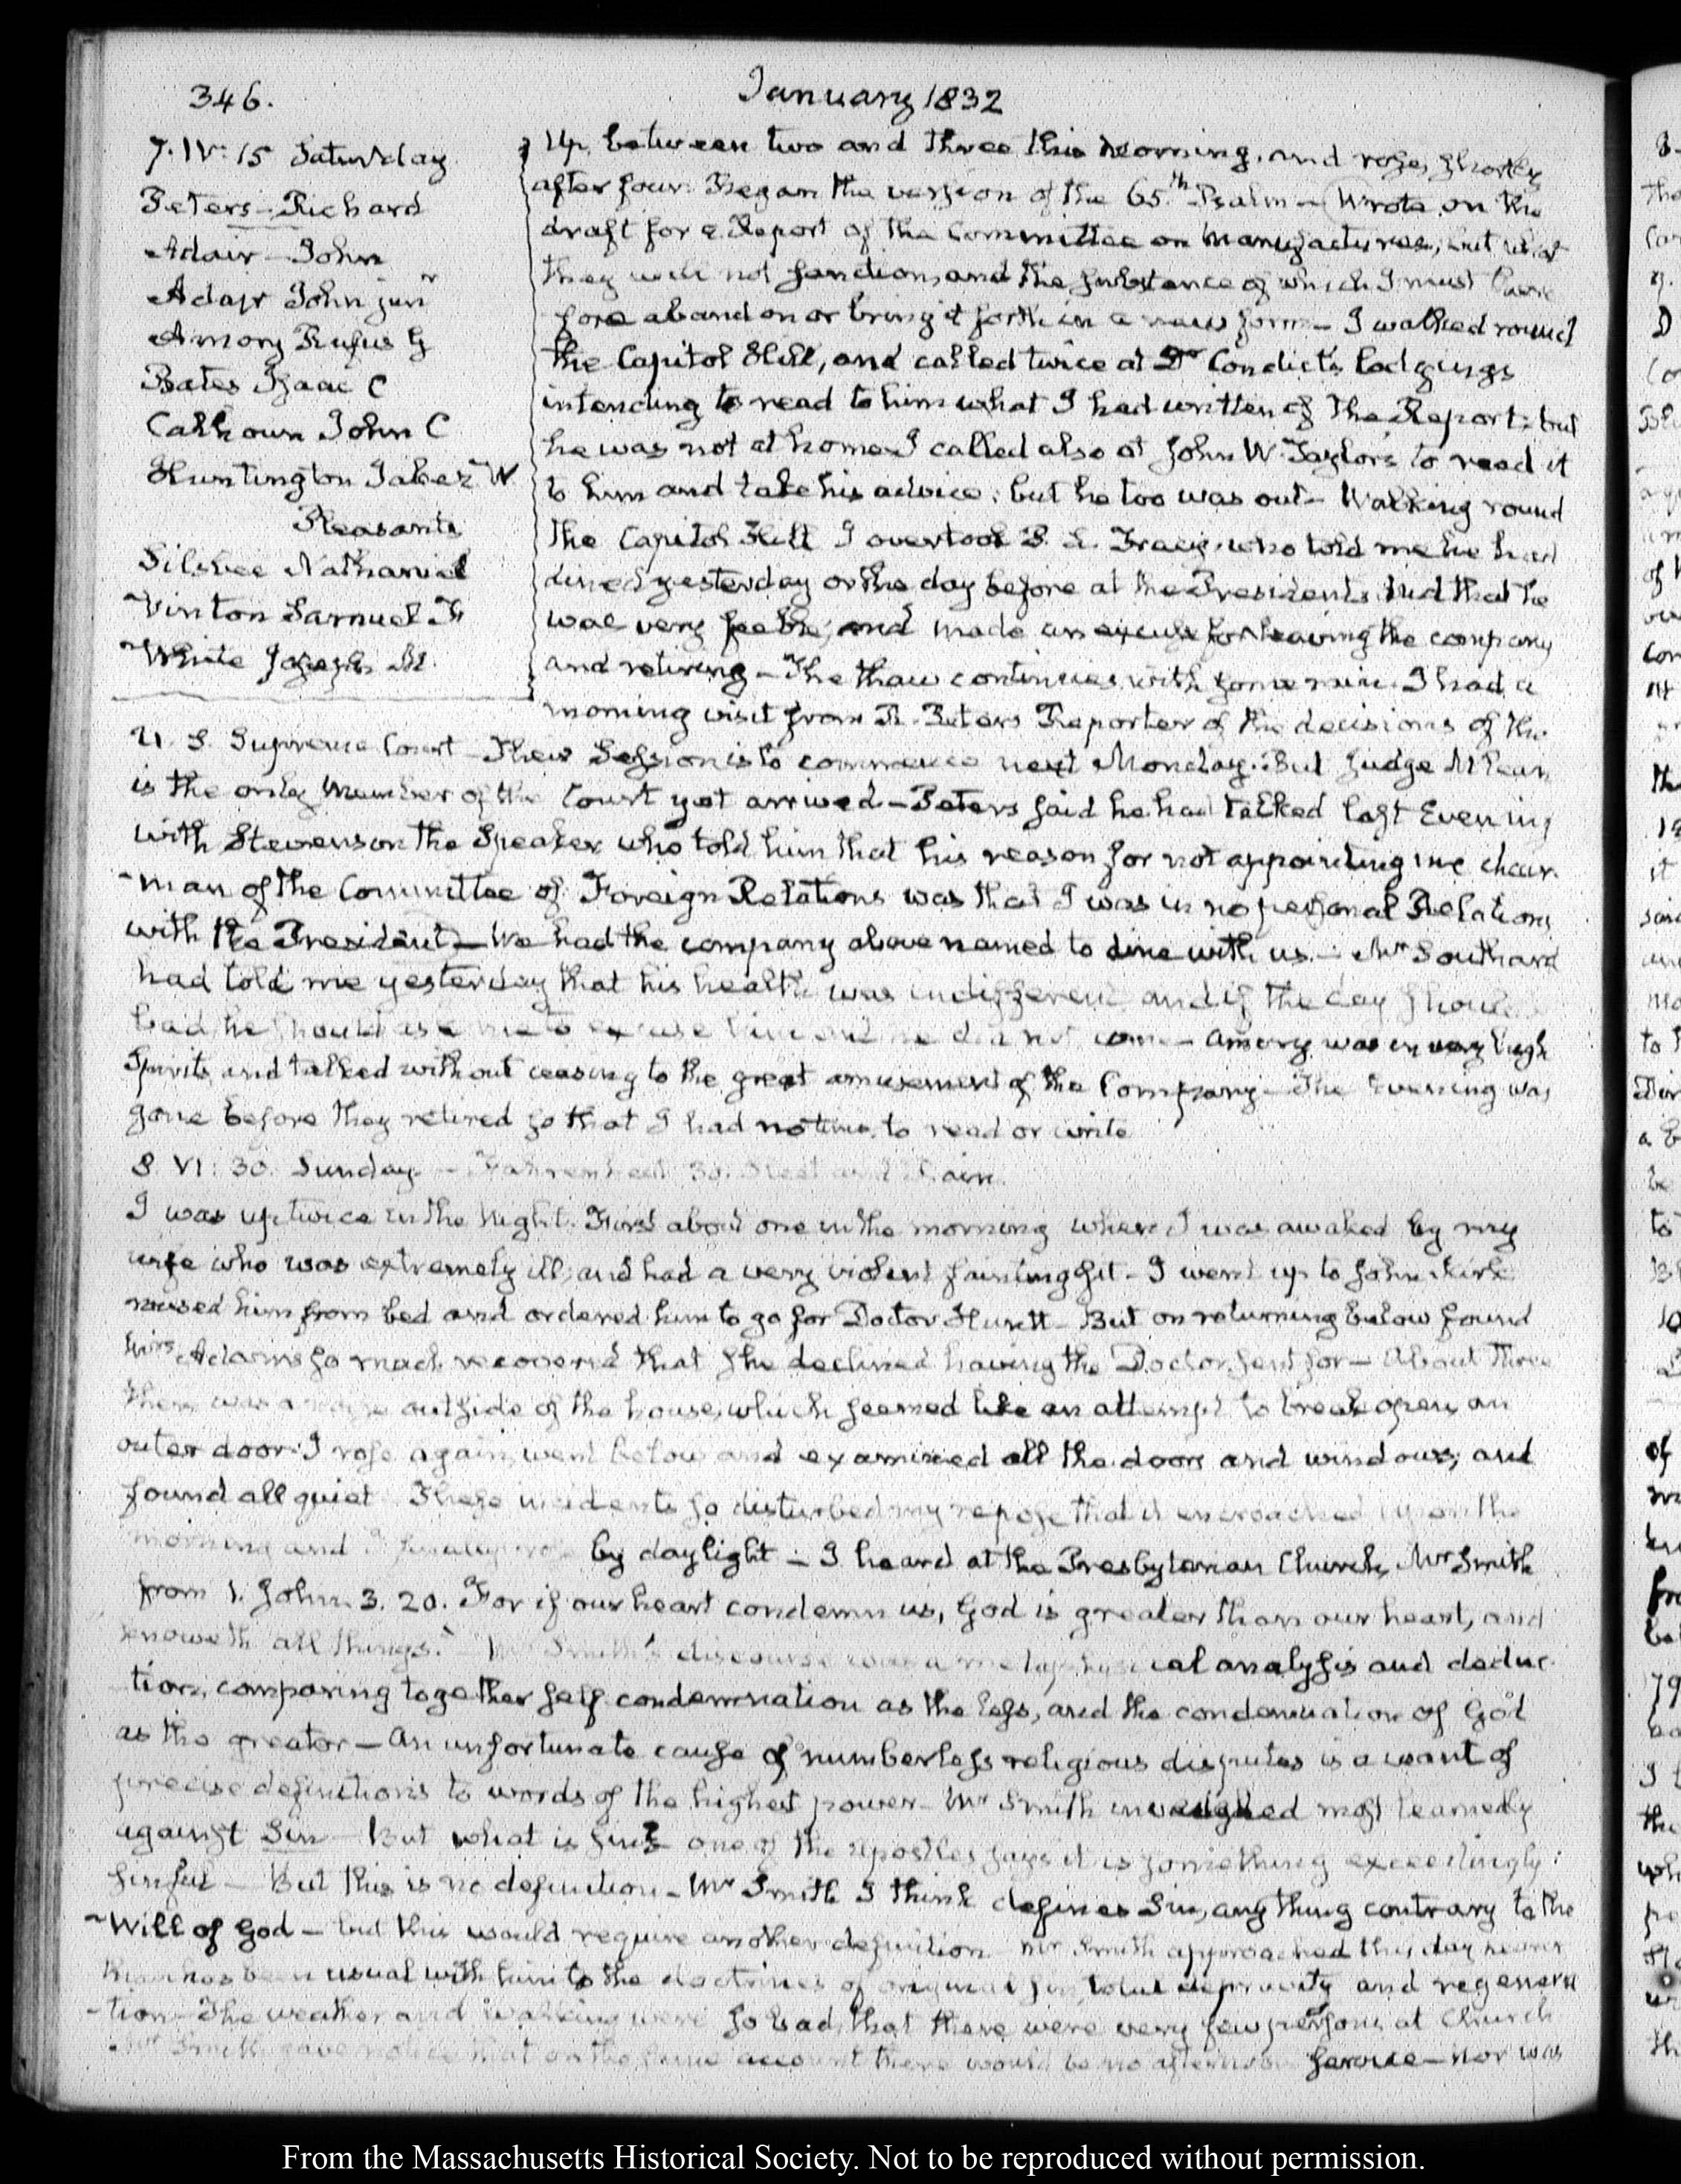 346.
January 1832
7. IV: 15 Saturday
Peters-Richard
Adair-John
Adair John junr
Amory Rufus G
Bates Isaac C
Calhoun John C
Huntington Jabez W
Pleasants
Silsbee Nathaniel
Vinton Samuel F
White Joseph M.
Up between two and three this morning, and rose, shortly
after four. Began the version of the 65.th Psalm — Wrote on the
draft for a Report of the Committee on Manufactures, but what
they will not sanction, and the substance of which I must there
fore abandon or bring it forth in a new form — I walked round
the Capitol Hill, and called twice at Dr Condict's lodgings
intending to read to him what I had written of the Report; but
he was not at home. I called also at John W. Taylor's to read it
to him and take his advice; but he too was out — Walking round
the Capitol Hill I overtook Tracy, who told me he had
dined yesterday or the day before at the President's, and that he
was very feeble, and made an excuse for leaving the company
and retiring — The thaw continues, with some rain. I had a
morning visit from R. Peters Reporter of the decisions of the
U. S. Supreme Court — Their Session is to commence next Monday. But Judge McLean
is the only member of the Court yet arrived — Peters said he had talked last Evening
with Stevenson the Speaker who told him that his reason for not appointing me chair-
-man of the Committee of Foreign Relations was that I was in no personal Relations
with the President — We had the company above named to dine with us. — Mr Southard
had told me yesterday that his health was indifferent and if the day should be
bad, he should ask me to excuse him and he did not come — Amory was in very high
Spirits, and talked without ceasing to the great amusement of the Company — The Evening was
gone before they retired so that I had no time to read or write
8. VI: 30. Sunday — Fahrenheit 30. Sleet and Rain.
I was up twice in the Night. First about one in the morning when I was awaked by my
wife who was extremely ill, and had a very violent fainting fit — I went up to John Kirk
roused him from bed and ordered him to go for Doctor Huntt — But on returning below found
Mrs Adams so much recovered that she declined having the Doctor sent for — About three
there was a noise outside of the house, which seemed like an attempt to break open an
outer door. I rose again, went below and examined all the doors and windows; and
found all quiet. These incidents so disturbed my repose that it encroached upon the
morning and I finally rose by daylight — I heard at the Presbyterian Church, Mr Smith
from 1. John. 3. 20. For if our heart condemn us, God is greater than our heart, and
knoweth all things." Mr Smith's discourse was a metaphysical analysis and deduc-
tion, comparing together self condemnation as the less, and the condemnation of God
as the greater — An unfortunate cause of numberless religious disputes is a want of
precise definitions to words of the highest power — Mr Smith inveighed most learnedly
against Sin — But what is sin? one of the apostles says it is something exceedingly
sinful — But this is no definition — Mr Smith I think defines Sin, any thing contrary to the
Will of God — but this would require another definition — Mr Smith approached this day nearer
than has been usual with him to the doctrines of original sin, total depravity and regenera
-tion — The weather and walking were so bad, that there were very few persons at Church
Mr Smith gave notice that on the same account there would be no afternoon service — nor was